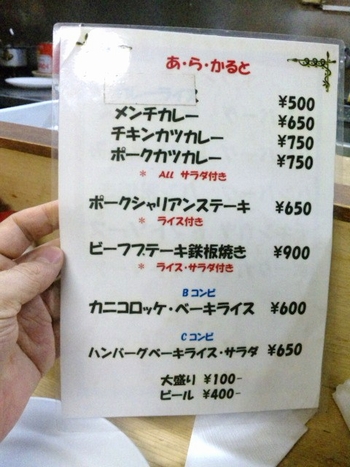 あ・ら・かると
ス ¥500
メンチカレー ¥650
チキンカツカレー ¥750
ポークカツカレー ¥750
＊ All サラダ付き
ポークシャリアンステーキ ¥650
＊ ライス付き
ビーフステーキ鉄板焼き ¥900
＊ ライス・サラダ付き
Bコンビ
カニコロッケ・ベーキライス ¥600
Cコンビ
ハンバーグベーキライス・サラダ ¥650
大盛り ¥100-
ビール ¥400-